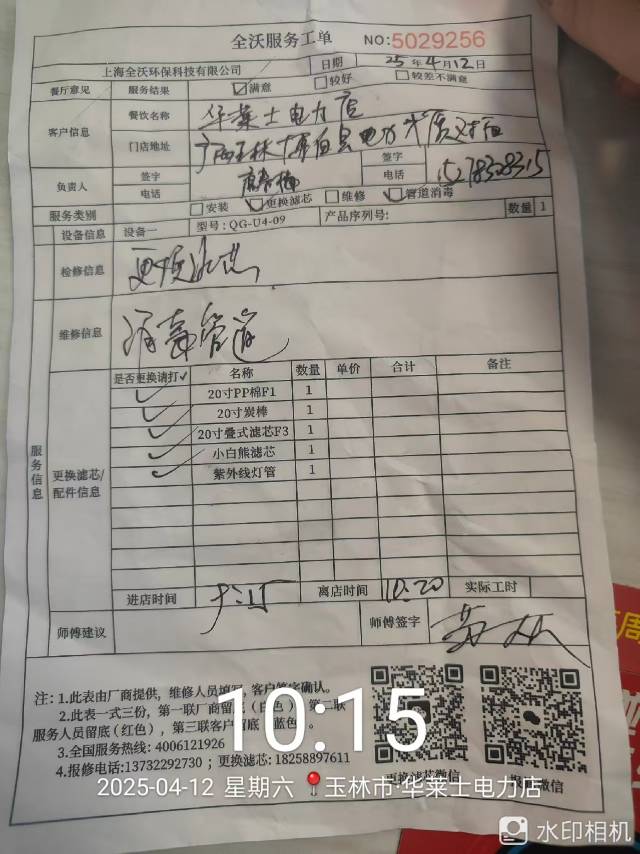 全沃服务工单 NO:5029256
上海全沃环保科技有限公司 日期 25年4月12日
餐厅意见 服务结果 ☑满意 □较好 □较差不满意
客户信息 餐饮名称 华莱士电力店
门店地址
负责人 签字 签字
电话 电话
服务类别 □安装 ☑更换滤芯 □维修 ☑管道消毒
设备信息 设备一 型号: QG-U4-09 产品序列号: 数量 1
检修信息 更换滤芯
维修信息 消毒管道
服务信息
更换滤芯/配件信息
是否更换请打✓ 名称 数量 单价 合计 备注
✓ 20寸PP棉F1 1
✓ 20寸炭棒 1
✓ 20寸叠式滤芯F3 1
✓ 小白熊滤芯 1
✓ 紫外线灯管 1
进店时间 离店时间 10:20 实际工时
师傅建议 师傅签字
注: 1.此表由厂商提供，维修人员填写，客户签字确认。
2.此表一式三份，第一联厂商留底（白色），第二联
服务人员留底(红色)，第三联客户留底（蓝色）。
3.全国服务热线: 4006121926
4.报修电话:13732292730 ; 更换滤芯: 18258897611
更换滤芯微信 报修微信
10:15
2025-04-12 星期六 玉林市·华莱士电力店
水印相机